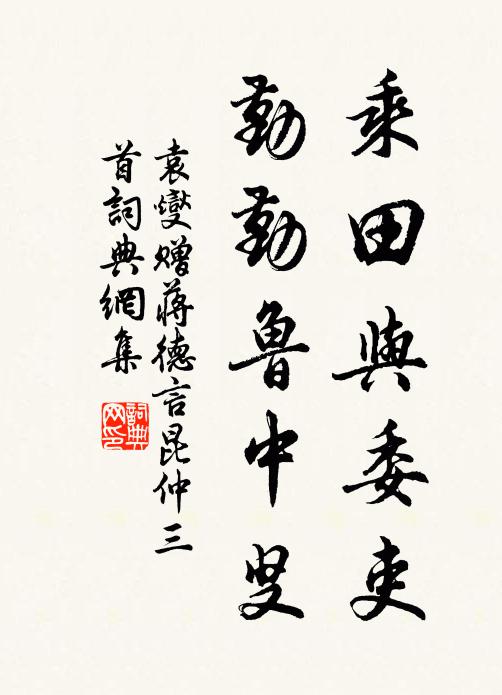 乘田與委吏
勤勤魯中叟
袁燮贈蔣德言昆仲三
首詞典網集
詞典
网印